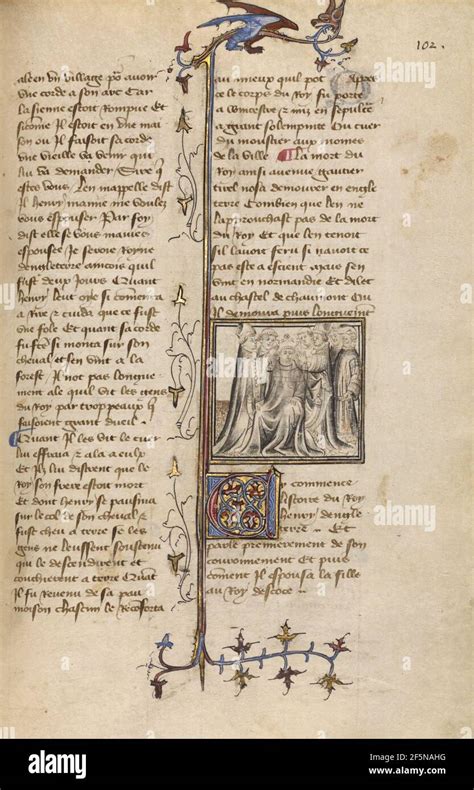 102.
alé en un village pour avoir
une corde a son arc Car
la sienne estoit rompue Et
sicomme Il estoit en une mai
son ou Il faisoit sa corde
une vieille va venir qui
lui va demander Sire qui
estes vous Len mappelle dist
Il henry mamie me voulez
vous espouser Par foy
dist elle se vous mavies
espousee Je seroie Royne
dengleterre aincois quil
fust deux Jours Quant
henry leut oye si commenca
a rire et cuida que ce fust
une fole Et quant sa corde
fu fete si monta sur son
cheval et sen vint a la
forest Il not pas longue
ment ale quil vit les gens
du Roy par troppeaux qui
faisoient grant dueil
Quant Il les vit le cuer
lui effraia et ala a eulx
Et Ilz lui distrent que le
Roy son frere estoit mort
Et dont henry se pausma
sur le col de son cheval et
fust cheu a terre se les
gens ne leussent soustenu
qui le descendirent et
coucherent a terre Quant
Il fu revenu de sa pau
moison chascun le reconforta
au mieux quil pot Apres
ce le corps du Roy fu porte
a Wincestre et mis en sepulture
a grant solempnite Ou cuer
du moustier aux moines
de la ville La mort du
Roy ainsi avenue gautier
tirel nosa demourer en engle
terre Combien que len ne
laprouchast pas de la mort
du Roy Et que len tenoit
sil lavoit feru si navoit ce
pas este a escient Mais sen
vint en normandie Et de let
au chastel de chaumont Ou
Il demoura puis longuement
Cy commence
listoire du Roy
henry dengle
terre Et
parle premierement de son
couronnement Et puis
comment Il espousa la fille
au Roy descoce
alamy
alamy
Image ID: 2F5NAHG
www.alamy.com